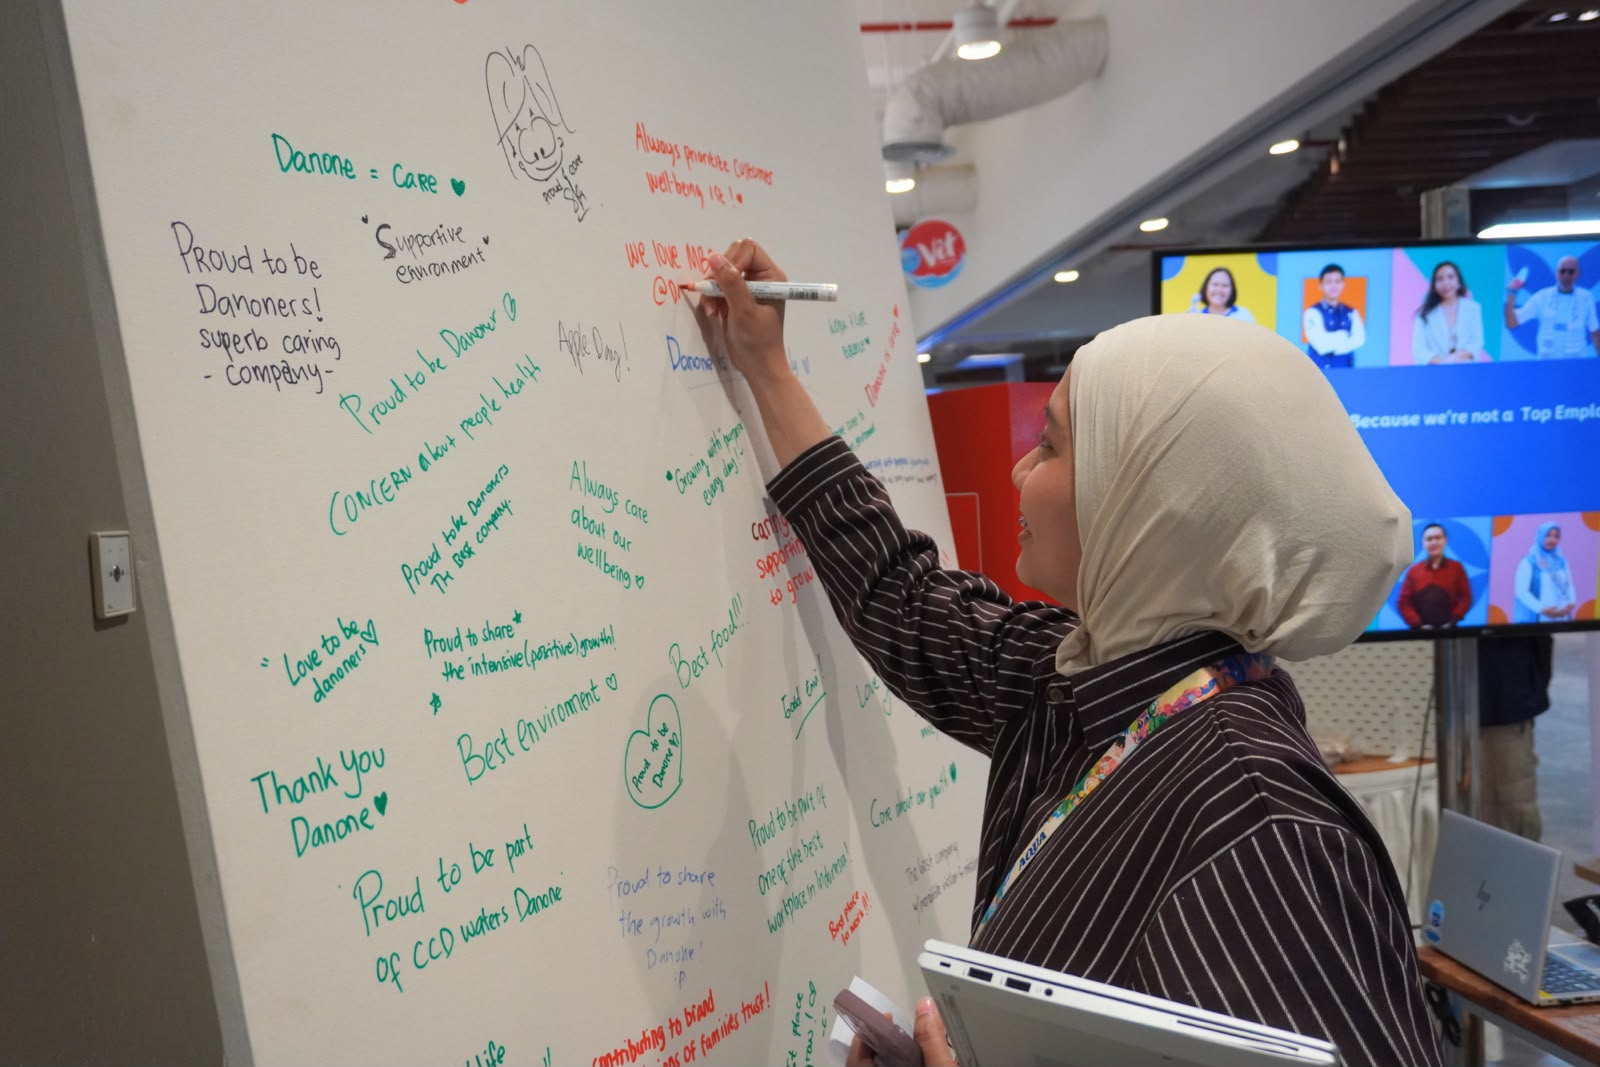 Danone = Care
Proud to be
Danoners!
superb caring
- company-
"Supportive
environment"
Proud
care
Always prioritize customer
well-being 1st!
We love
Proud to be Danoner
CONCERN about people health
Apple Day!
Danone is
Work + Life
Balance
Danone is love
Proud to be Danoners
The Best company.
Always care
about our
wellbeing
Growing with purpose
every day!
caring
supporting
to grow
"Love to be
danoners
Proud to share
the intensive (positive) growth!
Best food!!!
Best enviroment
Proud
to be
Danone
Good
Love
Thank You
Danone
Care about our growth
Proud to be part
of CCD waters Danone
Proud to be part of
one of the best
workplace in Indonesia!
The best company
Best place
to work!!!
Proud to share
the growth with
Danone!
:P
contributing to brand
of families trust!
life
place
grow
Vit
Because we're not a Top Emplo
AQUA
hp